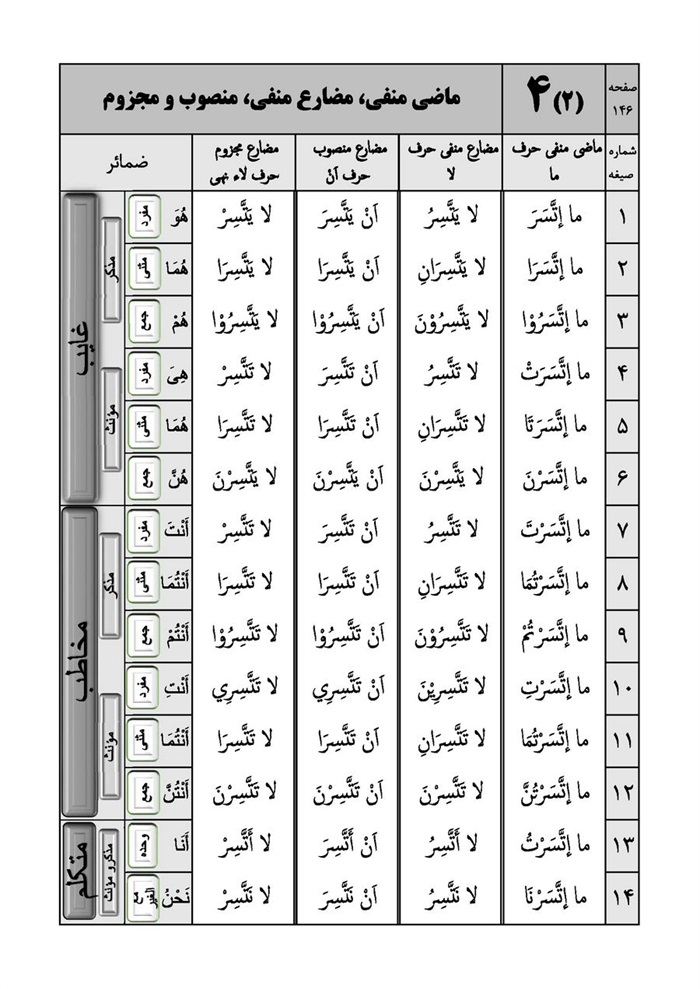 صفحه ۱۴۶ (۲)۴ ماضی منفی، مضارع منفی، منصوب و مجزوم
شماره صیغه ماضی منفی حرف ما مضارع منفی حرف لا مضارع منصوب حرف اَنْ مضارع مجزوم حرف لاء نهی ضمائر
۱ ما إتَّسَرَ لا يَتَّسِرُ اَنْ يَتَّسِرَ لا يَتَّسِرْ هُوَ مفرد مذکر غایب
۲ ما إتَّسَرَا لا يَتَّسِرَانِ اَنْ يَتَّسِرَا لا يَتَّسِرَا هُمَا مثنی
۳ ما إتَّسَرُوْا لا يَتَّسِرُوْنَ اَنْ يَتَّسِرُوْا لا يَتَّسِرُوْا هُمْ جمع
۴ ما إتَّسَرَتْ لا تَتَّسِرُ اَنْ تَتَّسِرَ لا تَتَّسِرْ هِیَ مفرد مؤنث
۵ ما إتَّسَرَتَا لا تَتَّسِرَانِ اَنْ تَتَّسِرَا لا تَتَّسِرَا هُمَا مثنی
۶ ما إتَّسَرْنَ لا يَتَّسِرْنَ اَنْ يَتَّسِرْنَ لا يَتَّسِرْنَ هُنَّ جمع
۷ ما إتَّسَرْتَ لا تَتَّسِرُ اَنْ تَتَّسِرَ لا تَتَّسِرْ أَنْتَ مفرد مذکر مخاطب
۸ ما إتَّسَرْتُمَا لا تَتَّسِرَانِ اَنْ تَتَّسِرَا لا تَتَّسِرَا أَنْتُمَا مثنی
۹ ما إتَّسَرْتُمْ لا تَتَّسِرُوْنَ اَنْ تَتَّسِرُوْا لا تَتَّسِرُوْا أَنْتُمْ جمع
۱۰ ما إتَّسَرْتِ لا تَتَّسِرِيْنَ اَنْ تَتَّسِرِي لا تَتَّسِرِي أَنْتِ مفرد مؤنث
۱۱ ما إتَّسَرْتُمَا لا تَتَّسِرَانِ اَنْ تَتَّسِرَا لا تَتَّسِرَا أَنْتُمَا مثنی
۱۲ ما إتَّسَرْتُنَّ لا تَتَّسِرْنَ اَنْ تَتَّسِرْنَ لا تَتَّسِرْنَ أَنْتُنَّ جمع
۱۳ ما إتَّسَرْتُ لا أَتَّسِرُ اَنْ أَتَّسِرَ لا أَتَّسِرْ أَنَا وحده مذکر و مؤنث متکلم
۱۴ ما إتَّسَرْنَا لا نَتَّسِرُ اَنْ نَتَّسِرَ لا نَتَّسِرْ نَحْنُ مع الغیر